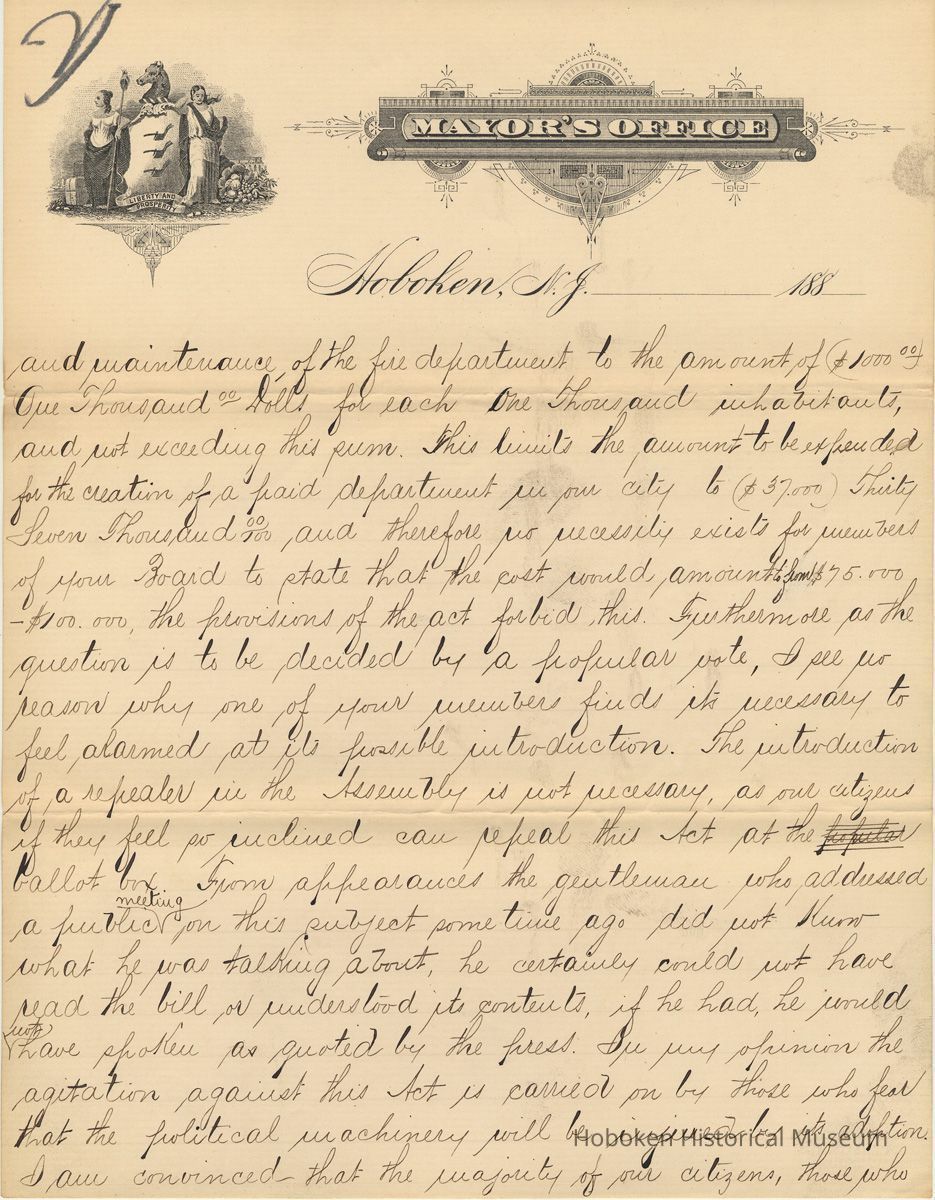 V
LIBERTY AND
PROSPERITY
MAYOR'S OFFICE
Hoboken, N. J. 188
and maintenance of the fire department to the amount of ($1000 00)
One Thousand 00 Dolls for each One Thousand inhabitants,
and not exceeding this sum. This limits the amount to be expended
for the creation of a paid department in our city to ($37.000) Thirty
Seven Thousand 00/100 and therefore no necessity exists for members
of your Board to state that the cost would amount to from $75.000
-$100.000, the provisions of the act forbid this. Furthermore as the
question is to be decided by a popular vote, I see no
reason why one of your members finds it necessary to
feel alarmed at its possible introduction. The introduction
of a repealer in the Assembly is not necessary, as our citizens
if they feel so inclined can repeal this Act at the popular
ballot box. From appearances the gentleman who addressed
a public meeting on this subject some time ago did not Know
what he was talking about, he certainly could not have
read the bill or understood its contents, if he had, he would
not have spoken as quoted by the press. In my opinion the
agitation against this Act is carried on by those who fear
that the political machinery will be injured by its adoption.
Hoboken Historical Museum
I am convinced that the majority of our citizens, those who